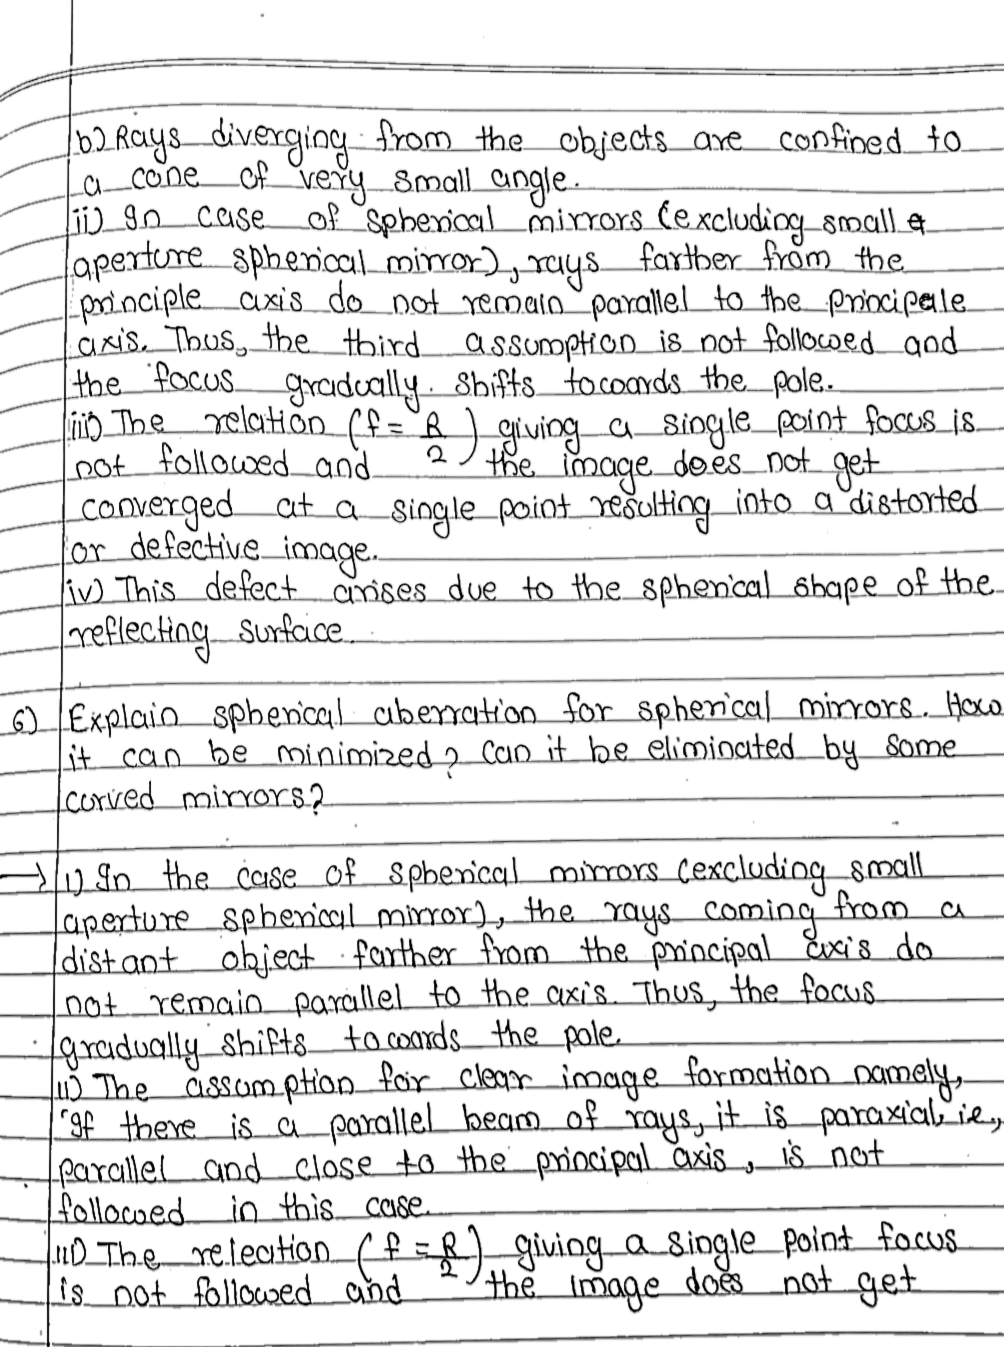 b) Rays diverging from the objects are confined to
a cone of very small angle.
ii) In case of spherical mirrors (excluding small
aperture spherical mirror), rays farther from the
principle axis do not remain parallel to the principale
axis. Thus, the third assumption is not followed and
the focus gradually shifts towards the pole.
iii) The relation (f = R/2) giving a single point focus is
not followed and the image does not get
converged at a single point resulting into a distorted
or defective image.
iv) This defect arises due to the spherical shape of the
reflecting surface.
6) Explain spherical aberration for spherical mirrors. How
it can be minimized? Can it be eliminated by some
curved mirrors?
→ i) In the case of spherical mirrors (excluding small
aperture spherical mirror), the rays coming from a
distant object farther from the principal axis do
not remain parallel to the axis. Thus, the focus
gradually shifts towards the pole.
ii) The assumption for clear image formation namely,
'If there is a parallel beam of rays, it is paraxial, ie,
parallel and close to the principal axis, is not
followed in this case.
iii) The releation (f = R/2) giving a single point focus
is not followed and the image does not get